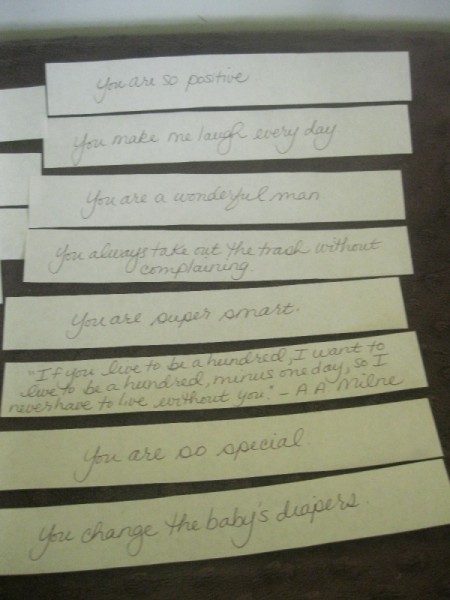 You are so positive
You make me laugh every day
You are a wonderful man
You always take out the trash without
complaining.
You are super smart.
"If you live to be a hundred, I want to
live to be a hundred, minus one day, so I
never have to live without you." - A A. Milne
You are so special.
You change the baby's diapers.